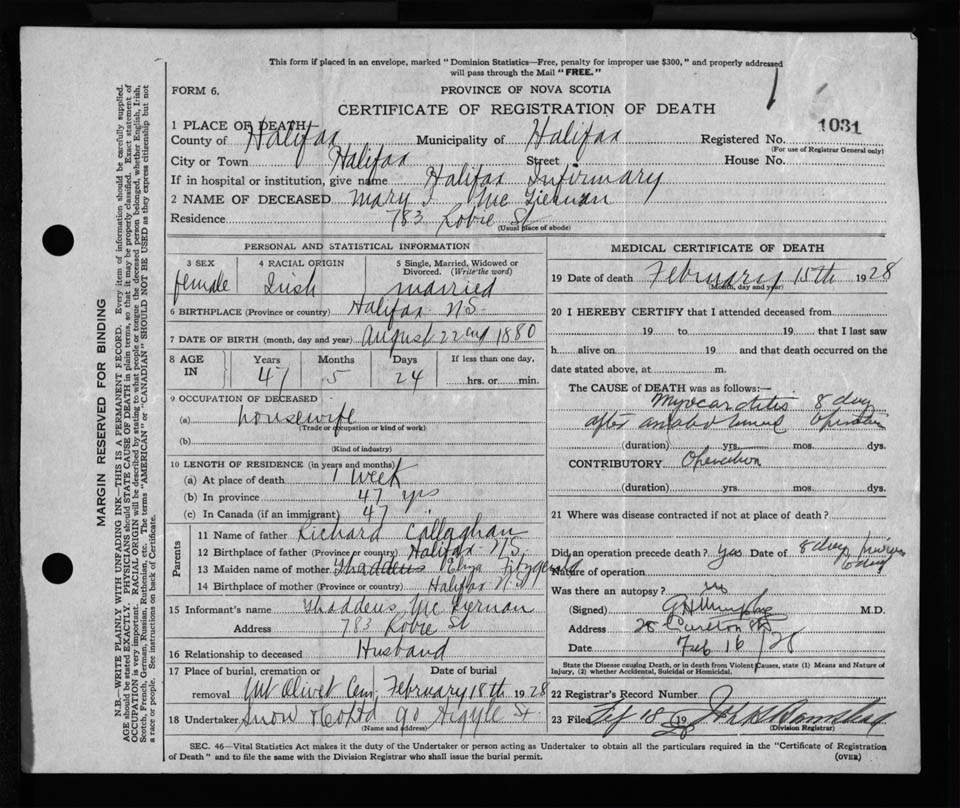 This form if placed in an envelope, marked "Dominion Statistics—Free, penalty for improper use $300," and properly addressed
will pass through the Mail "FREE."
FORM 6.
PROVINCE OF NOVA SCOTIA
CERTIFICATE OF REGISTRATION OF DEATH
1031
1 PLACE OF DEATH
County of Halifax Municipality of Halifax Registered No.
(For use of Registrar General only)
City or Town Halifax Street House No.
If in hospital or institution, give name Halifax Infirmary
2 NAME OF DECEASED Mary J. McTiernan
Residence 783 Robie St
(Usual place of abode)
PERSONAL AND STATISTICAL INFORMATION
3 SEX female
4 RACIAL ORIGIN Irish
5 Single, Married, Widowed or Divorced. (Write the word) married
6 BIRTHPLACE (Province or country) Halifax N.S.
7 DATE OF BIRTH (month, day and year) August 22nd 1880
8 AGE IN Years Months Days If less than one day,
47 5 24 hrs. or min.
9 OCCUPATION OF DECEASED
(a) housewife
(Trade or occupation or kind of work)
(b)
(Kind of industry)
10 LENGTH OF RESIDENCE (in years and months)
(a) At place of death 1 week
(b) In province 47 yrs
(c) In Canada (if an immigrant) 47
Parents
11 Name of father Richard Callaghan
12 Birthplace of father (Province or country) Halifax N.S.
13 Maiden name of mother Thaddeus Eliza Fitzgerald
14 Birthplace of mother (Province or country) Halifax N.S.
15 Informant's name Thaddeus McTiernan
Address 783 Robie St
16 Relationship to deceased Husband
17 Place of burial, cremation or removal Mt Olivet Cem. Date of burial February 18th 1928
18 Undertaker Snow & Co Ltd 90 Argyle St.
(Name and address)
MEDICAL CERTIFICATE OF DEATH
19 Date of death February 15th 1928
(Month, day and year)
20 I HEREBY CERTIFY that I attended deceased from
19 to 19 that I last saw
h alive on 19 and that death occurred on the
date stated above, at m.
The CAUSE of DEATH was as follows:—
Myocarditis 8 day
after Operation
(duration) yrs. mos. dys.
CONTRIBUTORY Operation
(duration) yrs. mos. dys.
21 Where was disease contracted if not at place of death?
Did an operation precede death? yes Date of 8 day
Nature of operation
Was there an autopsy? no
(Signed) M.D.
Address 28 Carleton St
Date Feb 16/28
State the Disease causing Death, or in death from Violent Causes, state (1) Means and Nature of
Injury, (2) whether Accidental, Suicidal or Homicidal.
22 Registrar's Record Number
23 Filed 18 1928
(Division Registrar)
SEC. 46—Vital Statistics Act makes it the duty of the Undertaker or person acting as Undertaker to obtain all the particulars required in the "Certificate of Registration
of Death" and to file the same with the Division Registrar who shall issue the burial permit.
(OVER)
MARGIN RESERVED FOR BINDING
N.B.—WRITE PLAINLY WITH UNFADING INK—THIS IS A PERMANENT RECORD. Every item of information should be carefully supplied.
AGE should be stated EXACTLY. PHYSICIANS should STATE CAUSE OF DEATH in plain terms, so that it may be properly classified. Exact statement of
OCCUPATION is very important. RACIAL ORIGIN will be described by stating to what people or tongue the deceased person belonged, whether English, Irish,
Scotch, French, German, Russian, Ruthenian, etc. The terms "AMERICAN" or "CANADIAN" SHOULD NOT BE USED as they express citizenship but not
a race or people. See instructions on back of Certificate.